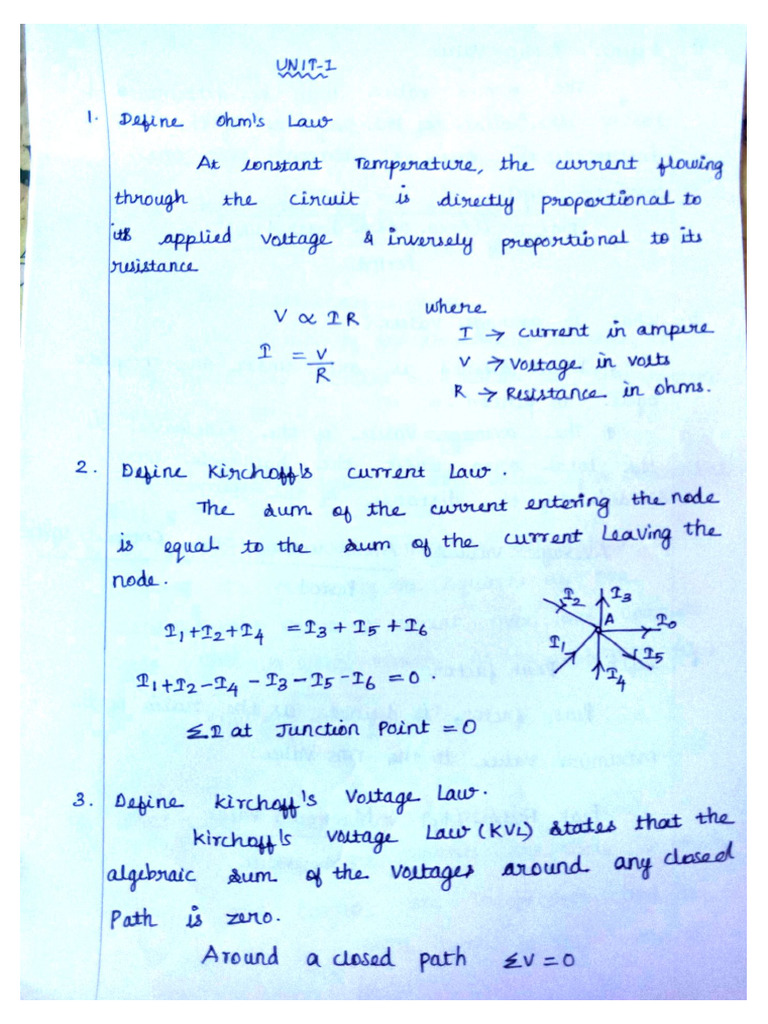 UNIT-I
1. Define Ohm's Law
At constant Temperature, the current flowing
through the circuit is directly proportional to
its applied voltage & inversely proportional to its
resistance
V ∝ I R
I = V/R
where
I → current in ampere
V → Voltage in volts
R → Resistance in ohms.
2. Define Kirchoff's current Law.
The sum of the current entering the node
is equal to the sum of the current Leaving the
node.
I1+I2+I4 = I3+I5+I6
I1+I2-I4-I3-I5-I6 = 0.
ΣI at Junction Point = 0
I2 I3
A I6
I1 I5
I4
3. Define kirchoff's Voltage Law.
kirchoff's voltage Law (KVL) states that the
algebraic sum of the voltages around any closed
Path is zero.
Around a closed path ΣV = 0